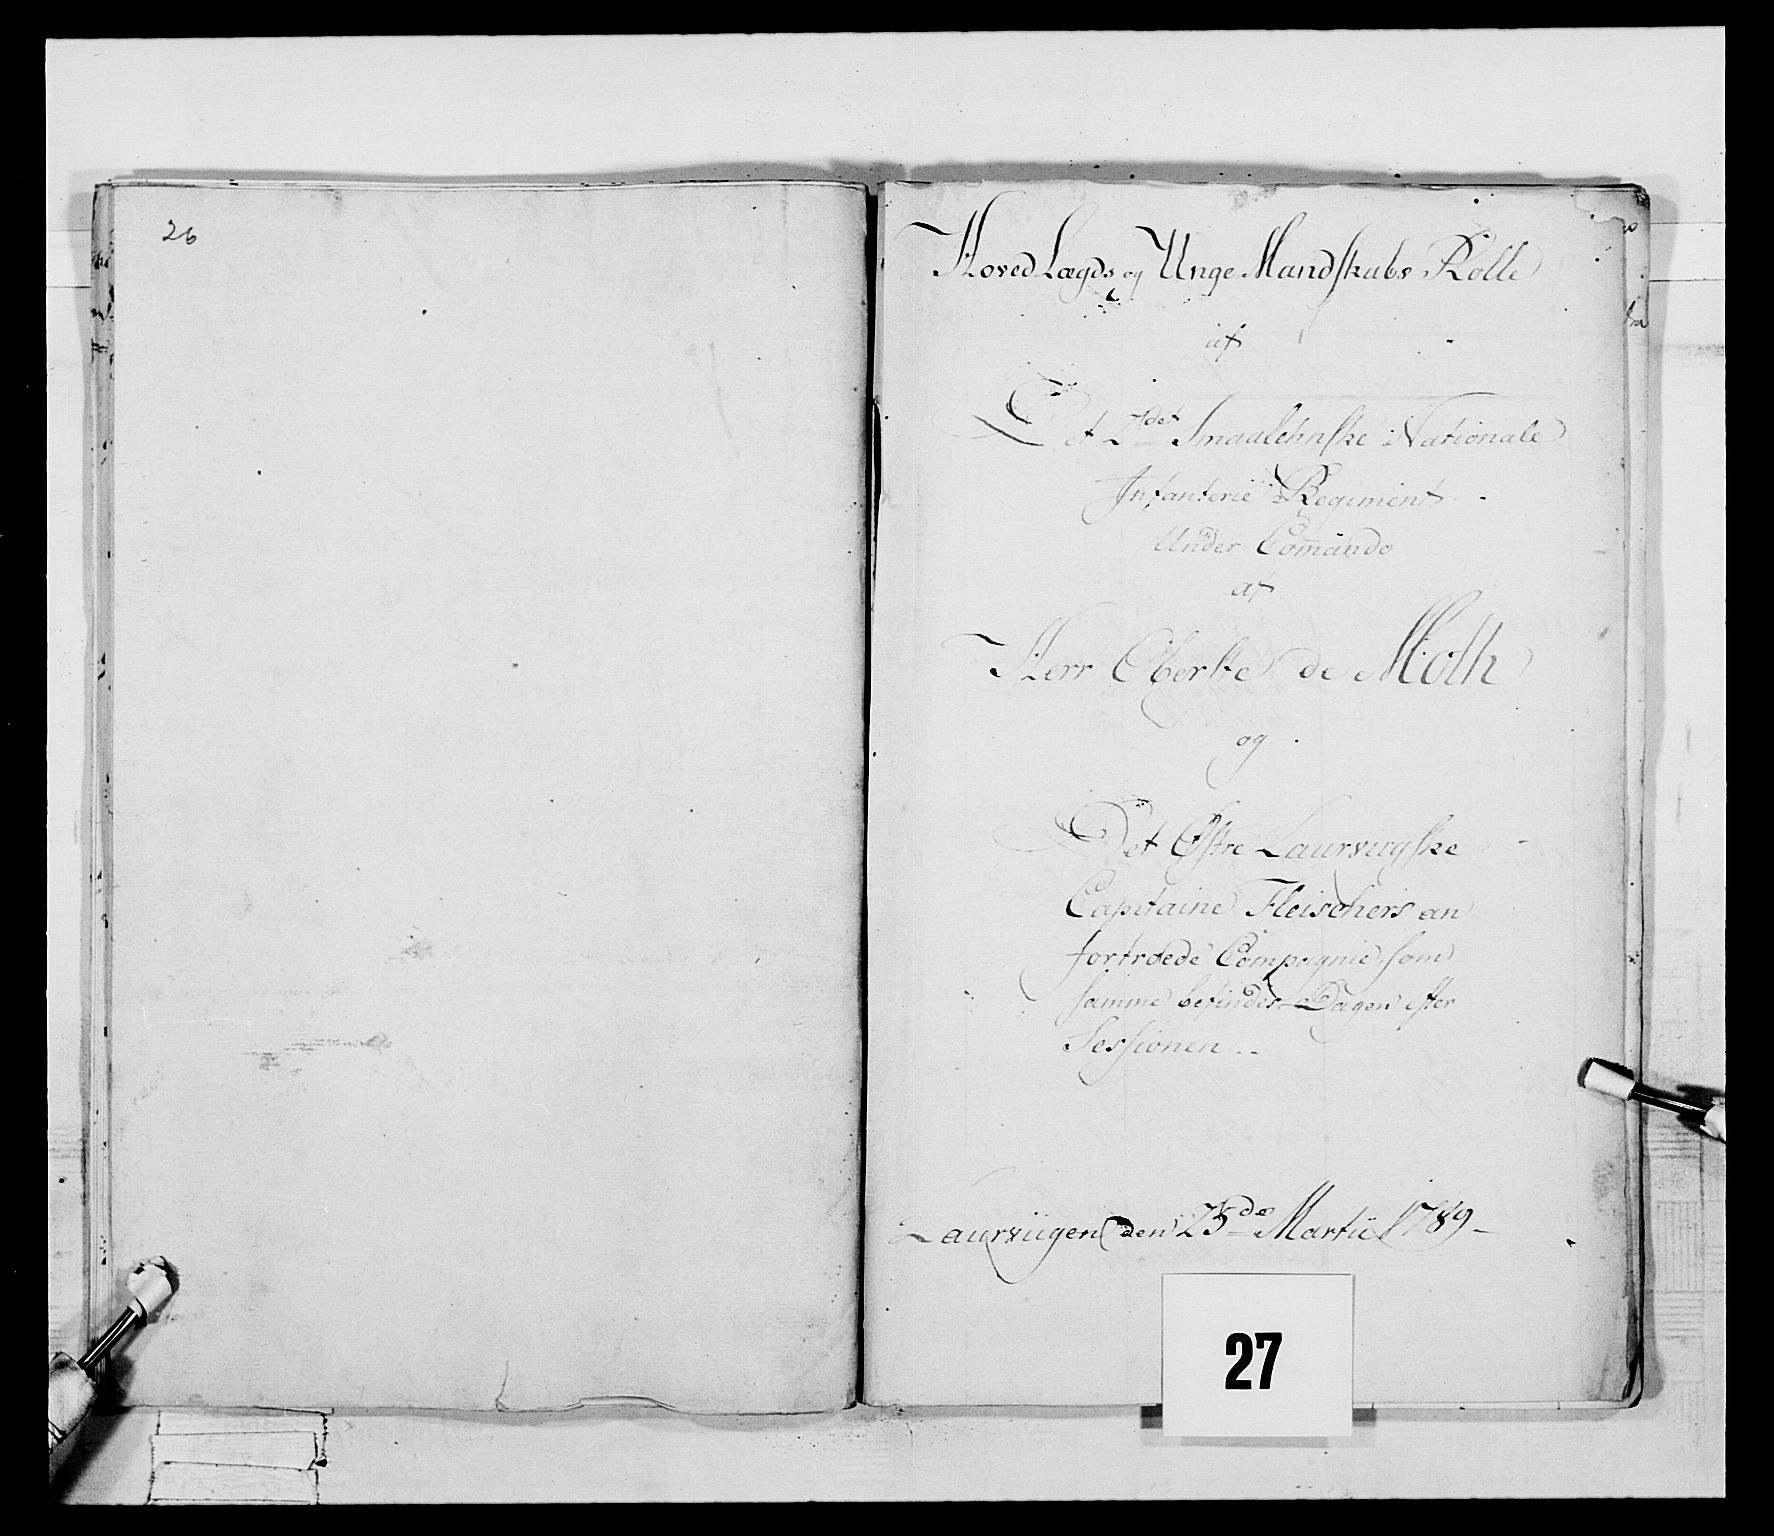 26
Hoved Lægds og Unge Mandskabs Rolle
af
Det 2det Smaalehnske Nationale
Infanterie Regiment
Under Com̄ando
af
Herr Oberste de Moth
og
Det Østre Laurviigske
Capitaine Fleischers an
fortroede Compagnie, som
samme befindes Dagen efter
Sessionen
Laurviigen den 25de Martii 1789
27